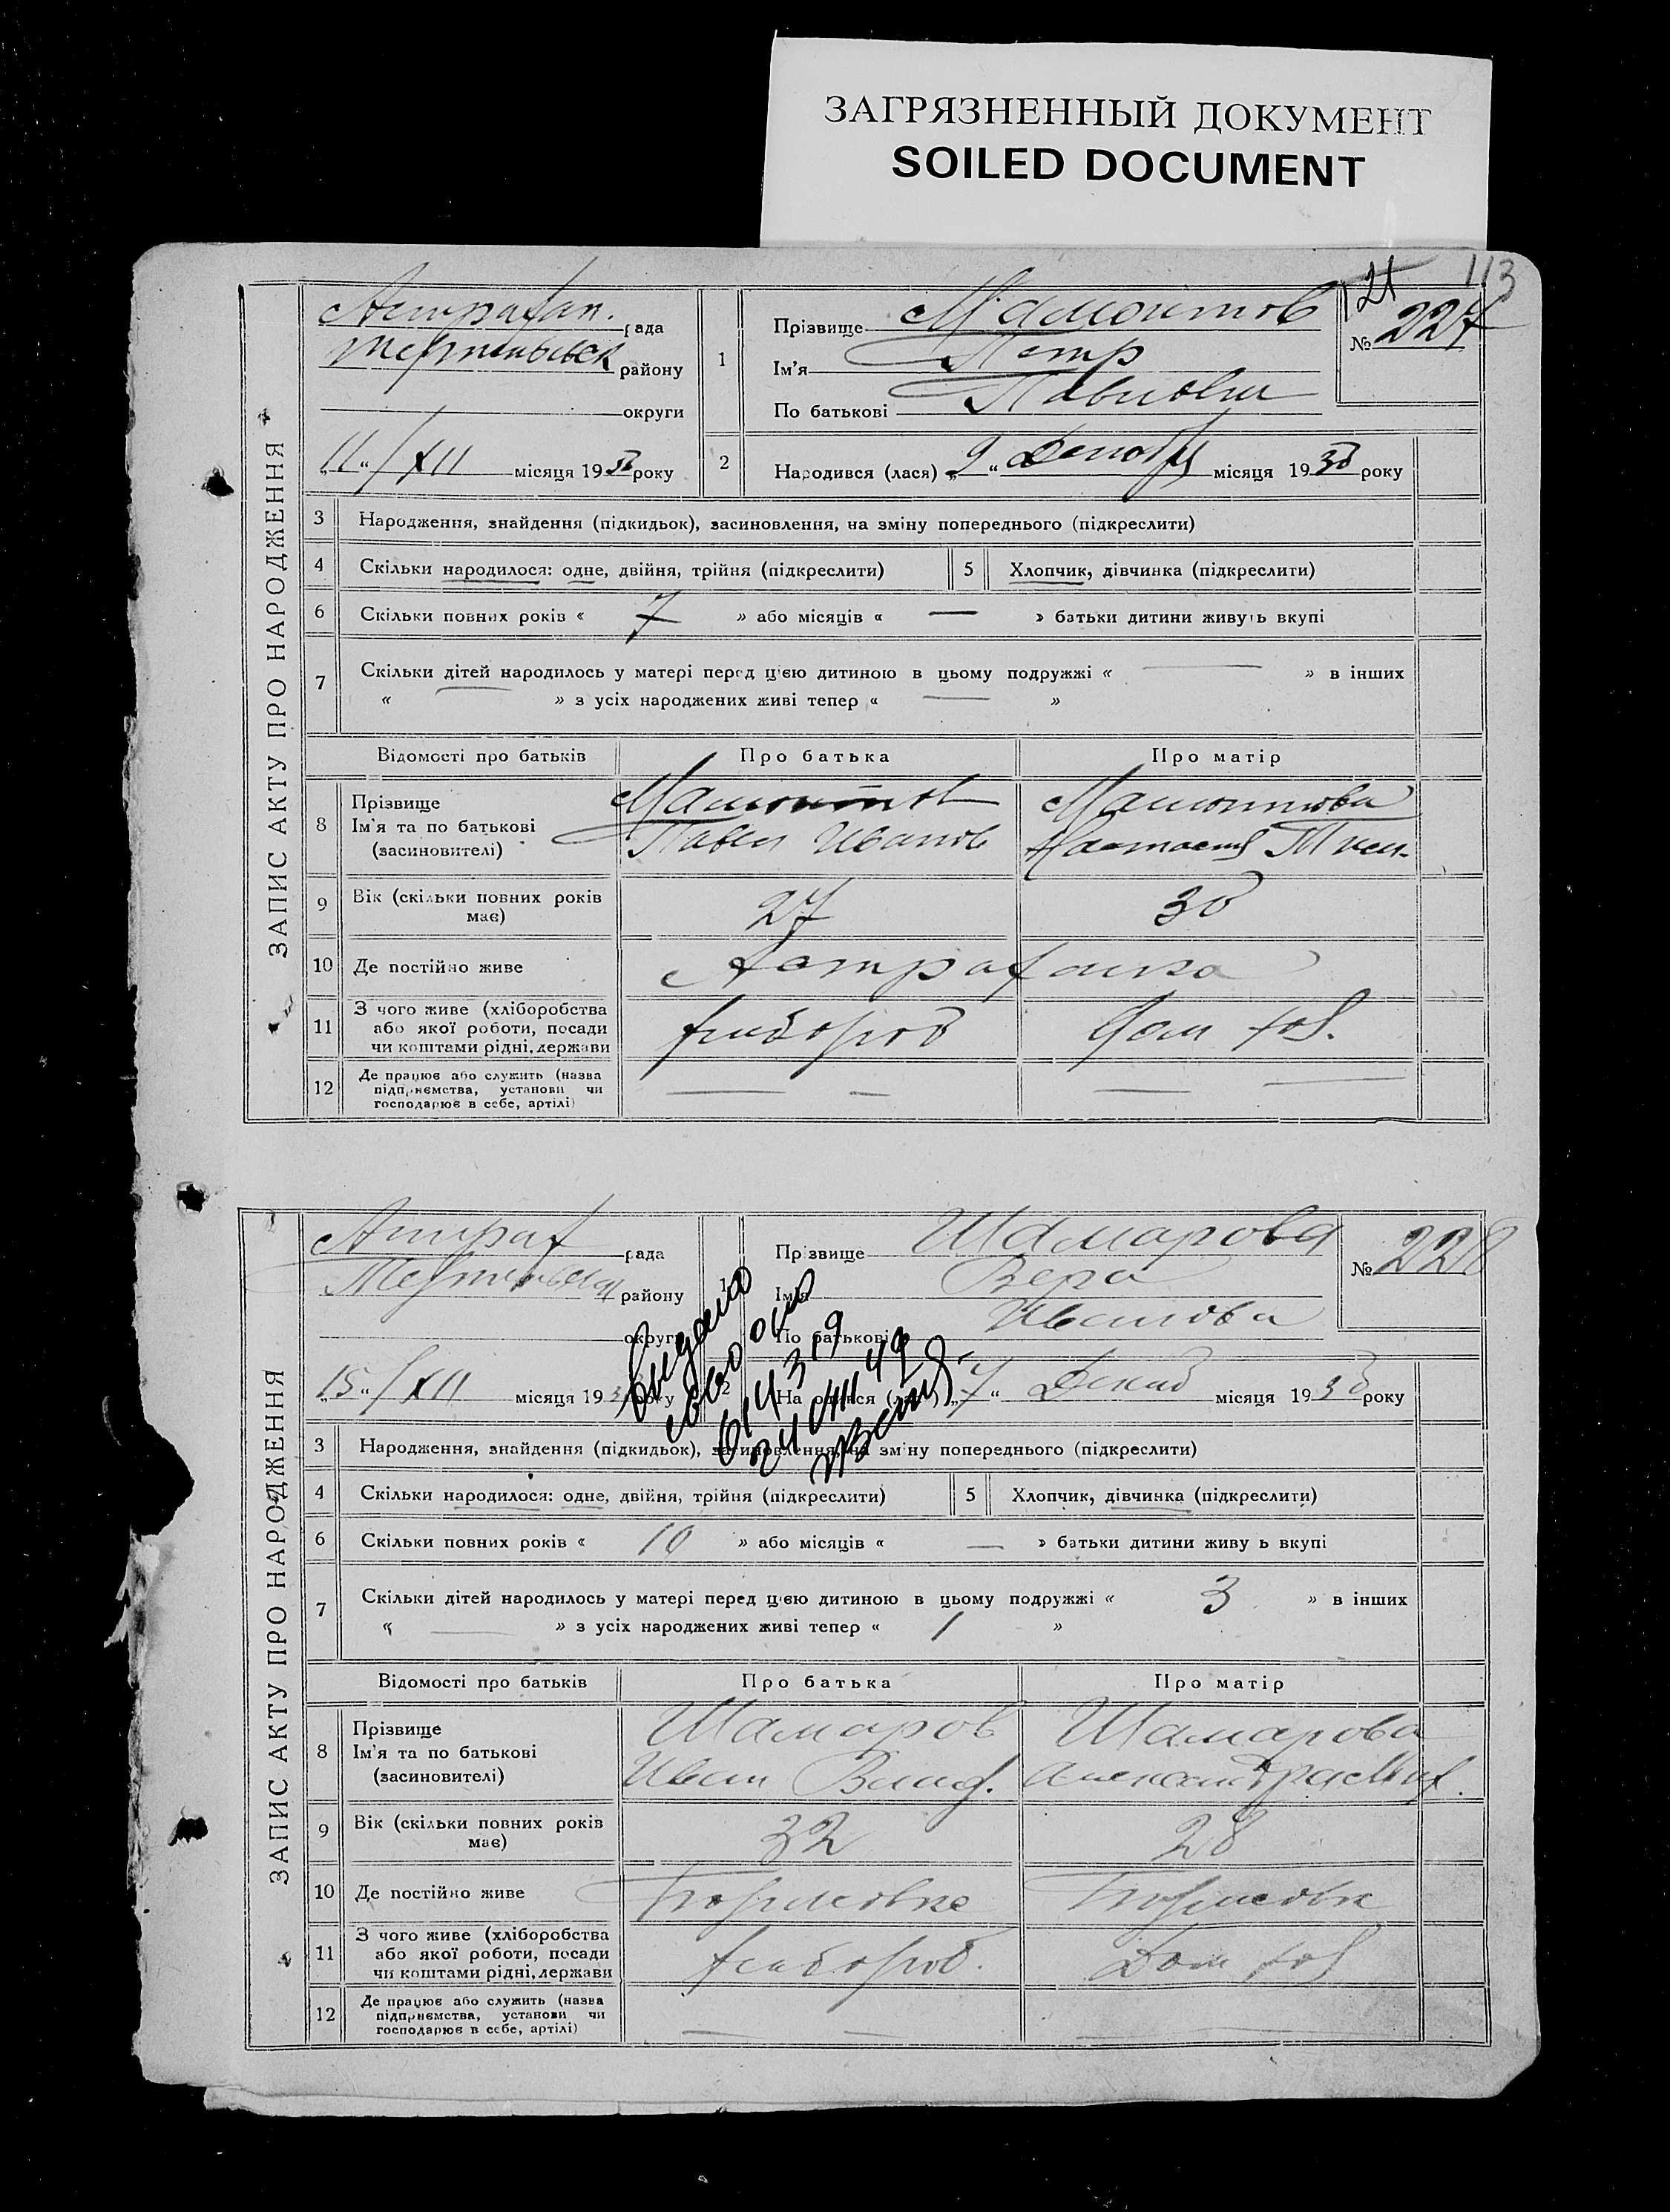 ЗАГРЯЗНЕННЫЙ ДОКУМЕНТ
SOILED DOCUMENT
113
121
ЗАПИС АКТУ ПРО НАРОДЖЕННЯ
Астрахан. рада
району
округи
„11“ /XII місяця 1930 року
1
Прізвище Мамонтов
Ім'я Петр
По батькові Павлович
№ 227
2
Народився (лася) „9“ Декабря місяця 1930 року
3 Народження, знайдення (підкидьок), засиновлення, на зміну попереднього (підкреслити)
4 Скільки народилося: одне, двійня, трійня (підкреслити)
5 Хлопчик, дівчинка (підкреслити)
6 Скільки повних років « 7 » або місяців « — » батьки дитини живуть вкупі
7 Скільки дітей народилось у матері перед цією дитиною в цьому подружжі « — » в інших
« — » з усіх народжених живі тепер « — »
Відомості про батьків Про батька Про матір
8 Прізвище Мамонтов Мамонтова
Ім'я та по батькові Павел Иванов Настасия
(засиновителі)
9 Вік (скільки повних років має) 27 30
10 Де постійно живе Астраханка
11 З чого живе (хліборобства або якої роботи, посади чи коштами рідні, держави хлібороб Дом хоз.
12 Де працює або служить (назва підприємства, установи чи господарює в себе, артілі) — — — —
ЗАПИС АКТУ ПРО НАРОДЖЕННЯ
Астрах рада
району
округи
„15“ /XII місяця 193 року
1
Прізвище Шамарова
Ім'я Вера
По батькові Иванова
№ 228
2
Народився (лася) „7“ Декаб місяця 1930 року
Выдано
614319
3 Народження, знайдення (підкидьок), засиновлення, на зміну попереднього (підкреслити)
4 Скільки народилося: одне, двійня, трійня (підкреслити)
5 Хлопчик, дівчинка (підкреслити)
6 Скільки повних років « 10 » або місяців « — » батьки дитини живу ь вкупі
7 Скільки дітей народилось у матері перед цією дитиною в цьому подружжі « 3 » в інших
« — » з усіх народжених живі тепер « 1 »
Відомості про батьків Про батька Про матір
8 Прізвище Шамаров Шамарова
Ім'я та по батькові Иван Влад. Александра Мих.
(засиновителі)
9 Вік (скільки повних років має) 32 28
10 Де постійно живе
11 З чого живе (хліборобства або якої роботи, посади чи коштами рідні, держави хлібороб. Дом хоз
12 Де працює або служить (назва підприємства, установи чи господарює в себе, артілі) — — —